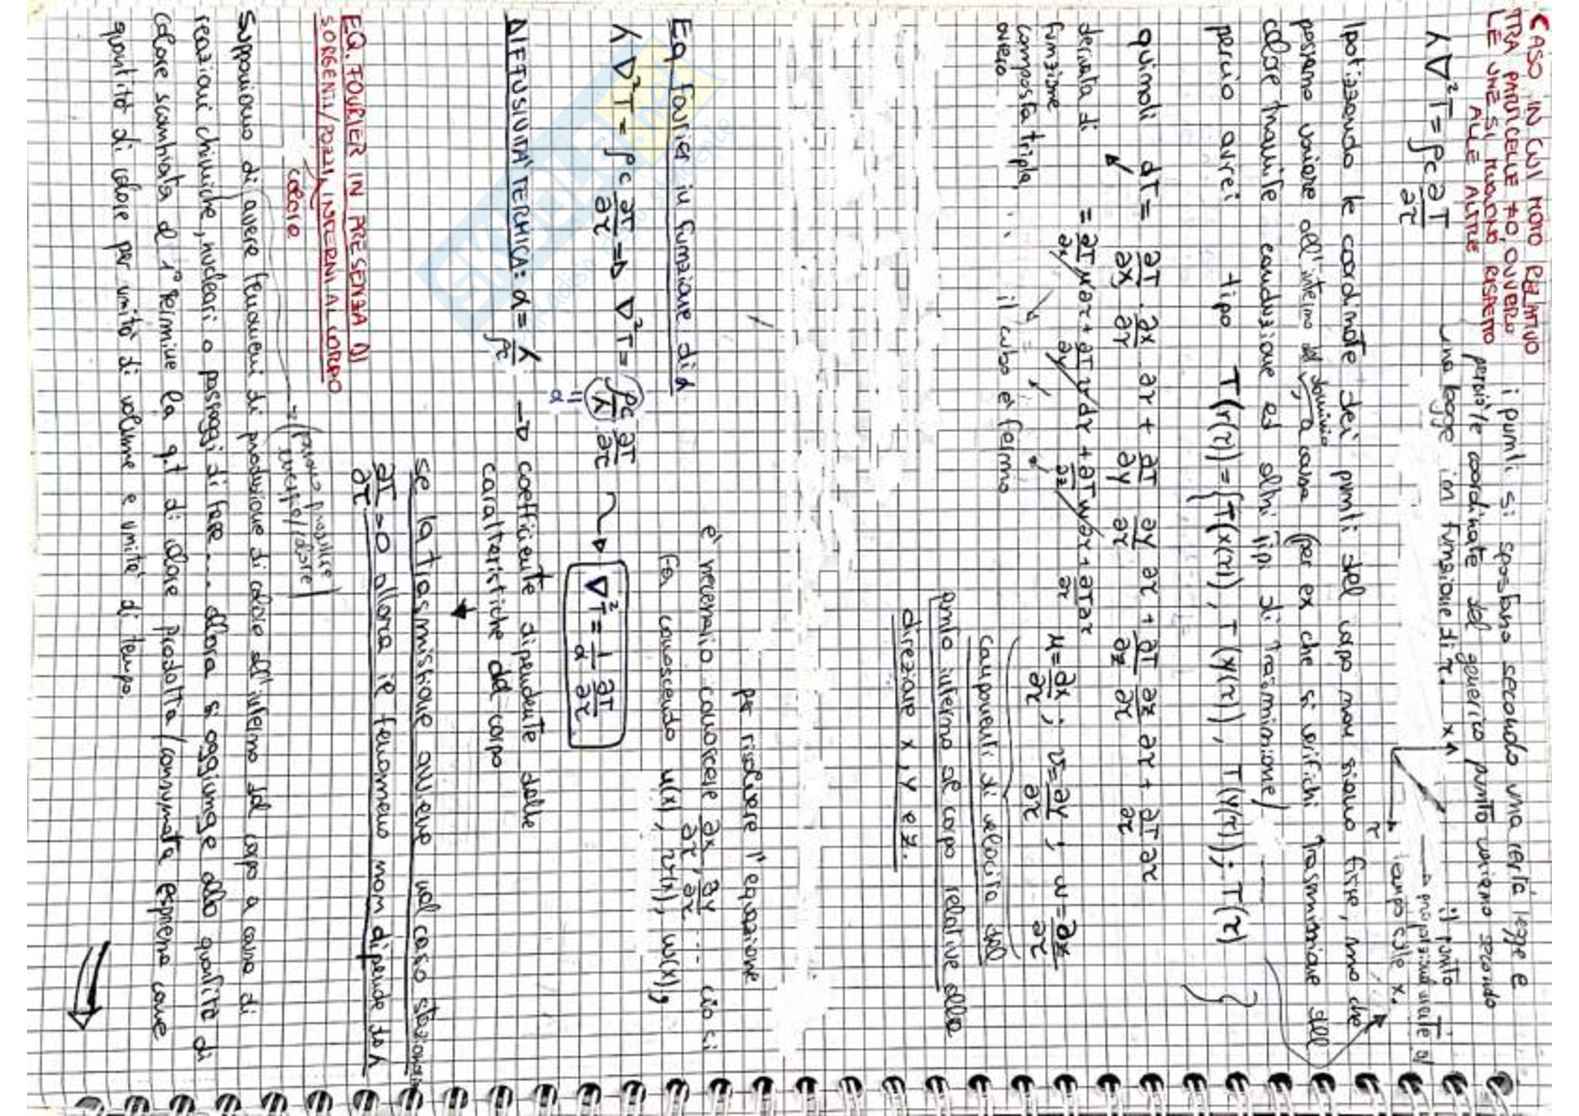 CASO IN CUI MOTO RELATIVO
TRA PARTICELLE ≠0, OVVERO
LE UNE SI MUOVONO RISPETTO
ALLE ALTRE
λ∇²T = ρc ∂T/∂τ
i punti si spostano secondo una certa legge e
perciò le coordinate del generico punto variano secondo
una legge in funzione di τ.
x
τ
il punto
proporzionale al
tempo e alle x.
Ipotizzando le coordinate dei punti del corpo non siano fisse, ma che
possano variare all'interno del dominio a causa (per ex che si verifichi trasmissione del
calore tramite conduzione ed altri tipi di trasmissione)
perciò avrei tipo T(r(τ)) = {T(x(τ)), T(y(τ)), T(y(τ)); T(τ)
quindi dT = ∂T/∂x ∂x/∂τ ∂τ + ∂T/∂y ∂y/∂τ ∂τ + ∂T/∂z ∂z/∂τ ∂τ + ∂T/∂τ ∂τ
derivata di
funzione
composta tripla,
ovvero
= ∂T/∂x u∂τ + ∂T/∂y v∂τ + ∂T/∂z w∂τ + ∂T/∂τ ∂τ
u = ∂x/∂τ ; v = ∂y/∂τ ; w = ∂z/∂τ
il cubo è fermo
componenti di velocità del
punto interno al corpo relative alle
direzione x, y e z.
per risolvere l'equazione
è necessario conoscere ∂x/∂τ, ∂y/∂τ ... ciò si
fa conoscendo u(x), v(x), w(x),
Eq fourier in funzione di α
λ∇²T = ρc ∂T/∂τ ⇒ ∇²T = ρc/λ ∂T/∂τ
∇²T = 1/α ∂T/∂τ
DIFFUSIVITÀ TERMICA: α = λ/ρc → coefficiente dipendente dalle
caratteristiche del corpo
se la trasmissione avviene nel caso stazionario
∂T/∂τ = 0 allora il fenomeno non dipende da λ
EQ. FOURIER IN PRESENZA DI
SORGENTI/POZZI INTERNI AL CORPO
calore
(pozzo
calore)
Supponiamo di avere fenomeni di produzione di calore all'interno del corpo a causa di
reazioni chimiche, nucleari o passaggi di fase... allora si aggiunge alla quantità di
calore scambiata al 1° termine la q.t di calore prodotta/consumata espressa come
quantità di calore per unità di volume e unità di tempo.